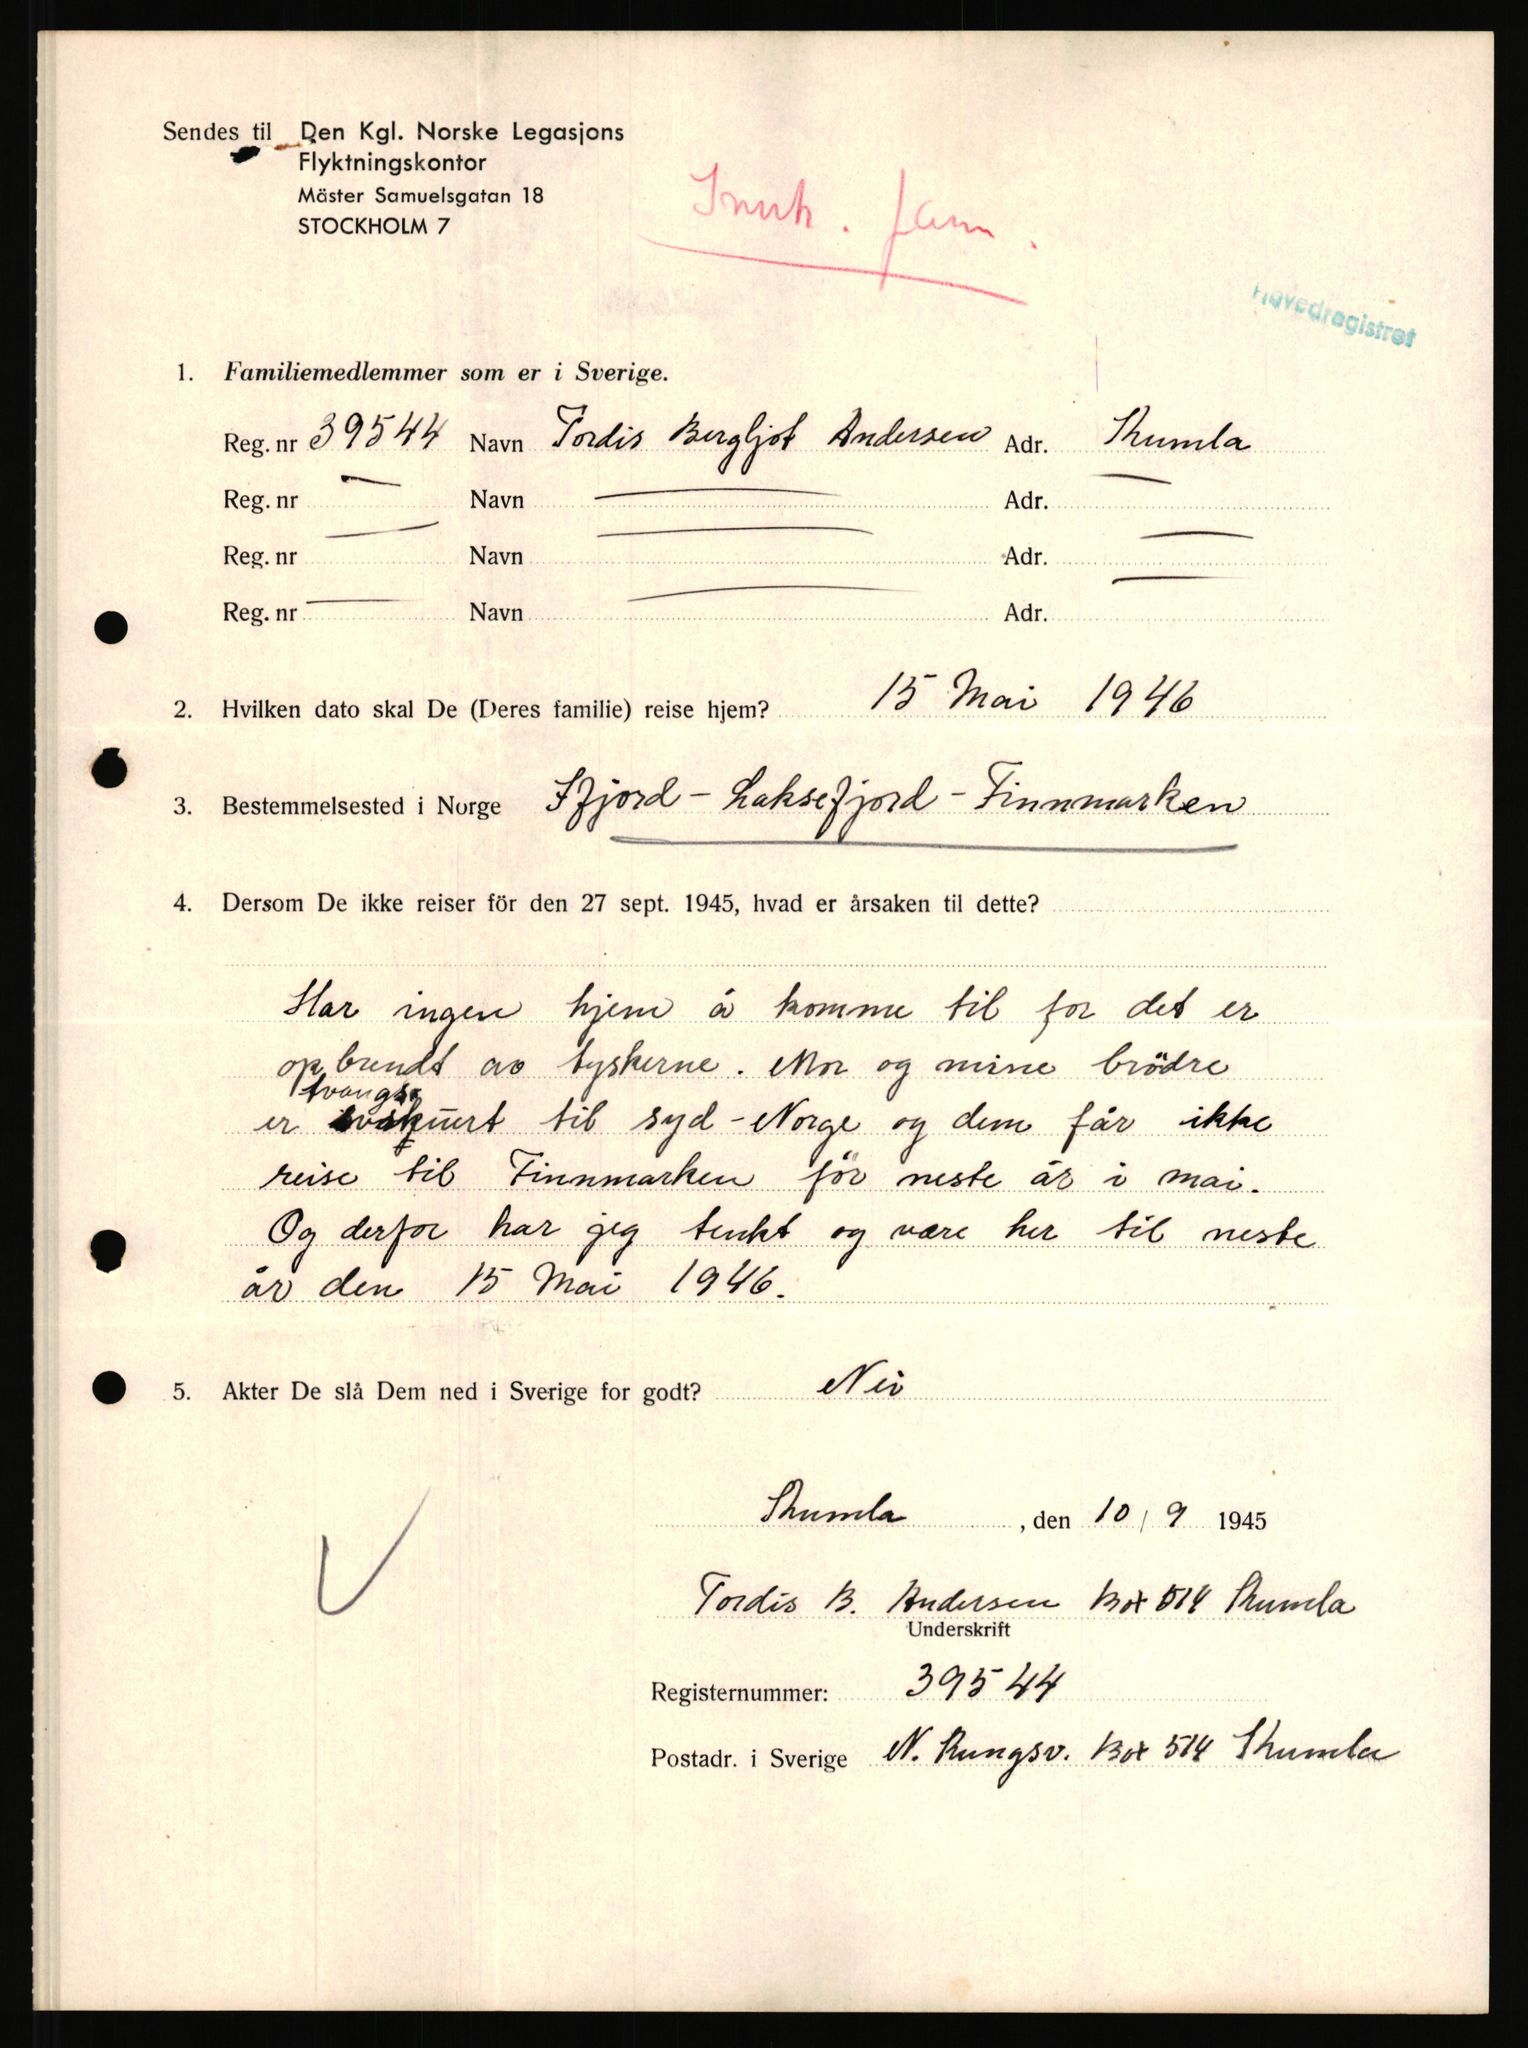 Sendes til Den Kgl. Norske Legasjons
Flyktningskontor
Mäster Samuelsgatan 18
STOCKHOLM 7
Hovedregistret
1. Familiemedlemmer som er i Sverige.
Reg. nr 39544 Navn Tordis Bergljot Andersen Adr. Kumla
Reg. nr Navn Adr.
Reg. nr Navn Adr.
Reg. nr Navn Adr.
2. Hvilken dato skal De (Deres familie) reise hjem? 15 Mai 1946
3. Bestemmelsested i Norge Ifjord - Laksefjord - Finnmarken
4. Dersom De ikke reiser för den 27 sept. 1945, hvad er årsaken til dette?
Har ingen hjem å komme til for det er
opbrendt av tyskerne. Mor og mine brödre
tvangs
er til syd-Norge og dem får ikke
reise til Finnmarken för neste år i mai.
Og derfor har jeg tenkt og være her til neste
år den 15 Mai 1946.
5. Akter De slå Dem ned i Sverige for godt? Nei
Kumla, den 10/9 1945
Tordis B. Andersen Box 514 Kumla
Underskrift
Registernummer: 39544
Postadr. i Sverige N. Kungsv. Box 514 Kumla